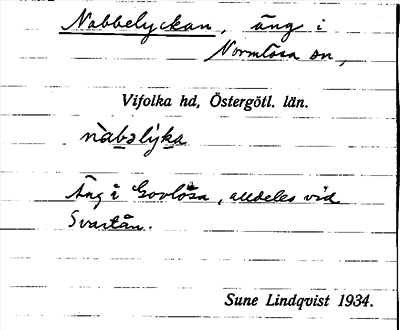 Nabbelyckan, äng i
Normlösa sn,
Vifolka hd, Östergötl. län.
nàbəlỳka
Äng å Govlösa, alldeles vid
Svartån.
Sune Lindqvist 1934.